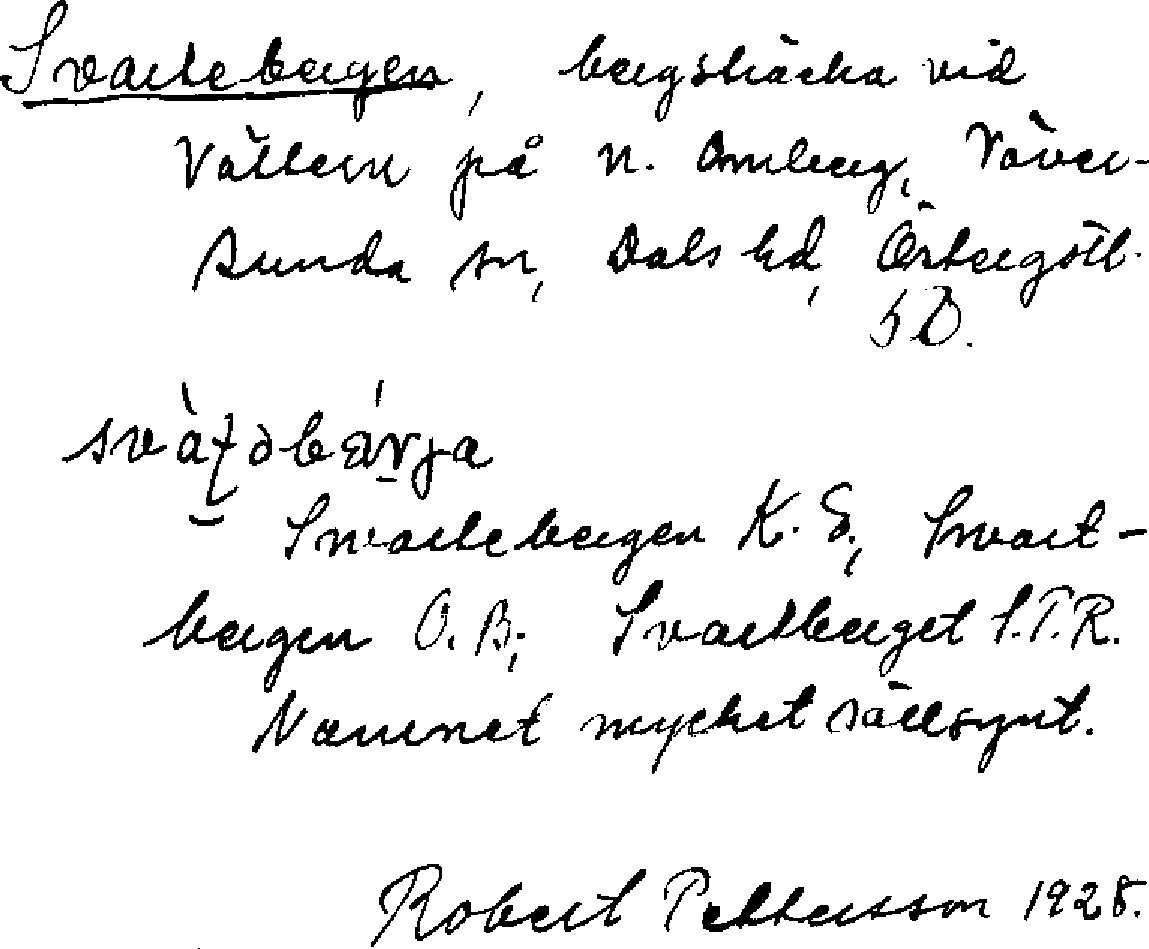 Svartebergen, bergsträcka vid
Vättern på n. Omberg, Väver-
sunda sn, Dals hd, Östergötl.
5 D.
Svartebergen K. E., Svart-
bergen O. B.; Svartberget S.T.R.
Namnet mycket sällsynt.
Robert Pettersson 1928.